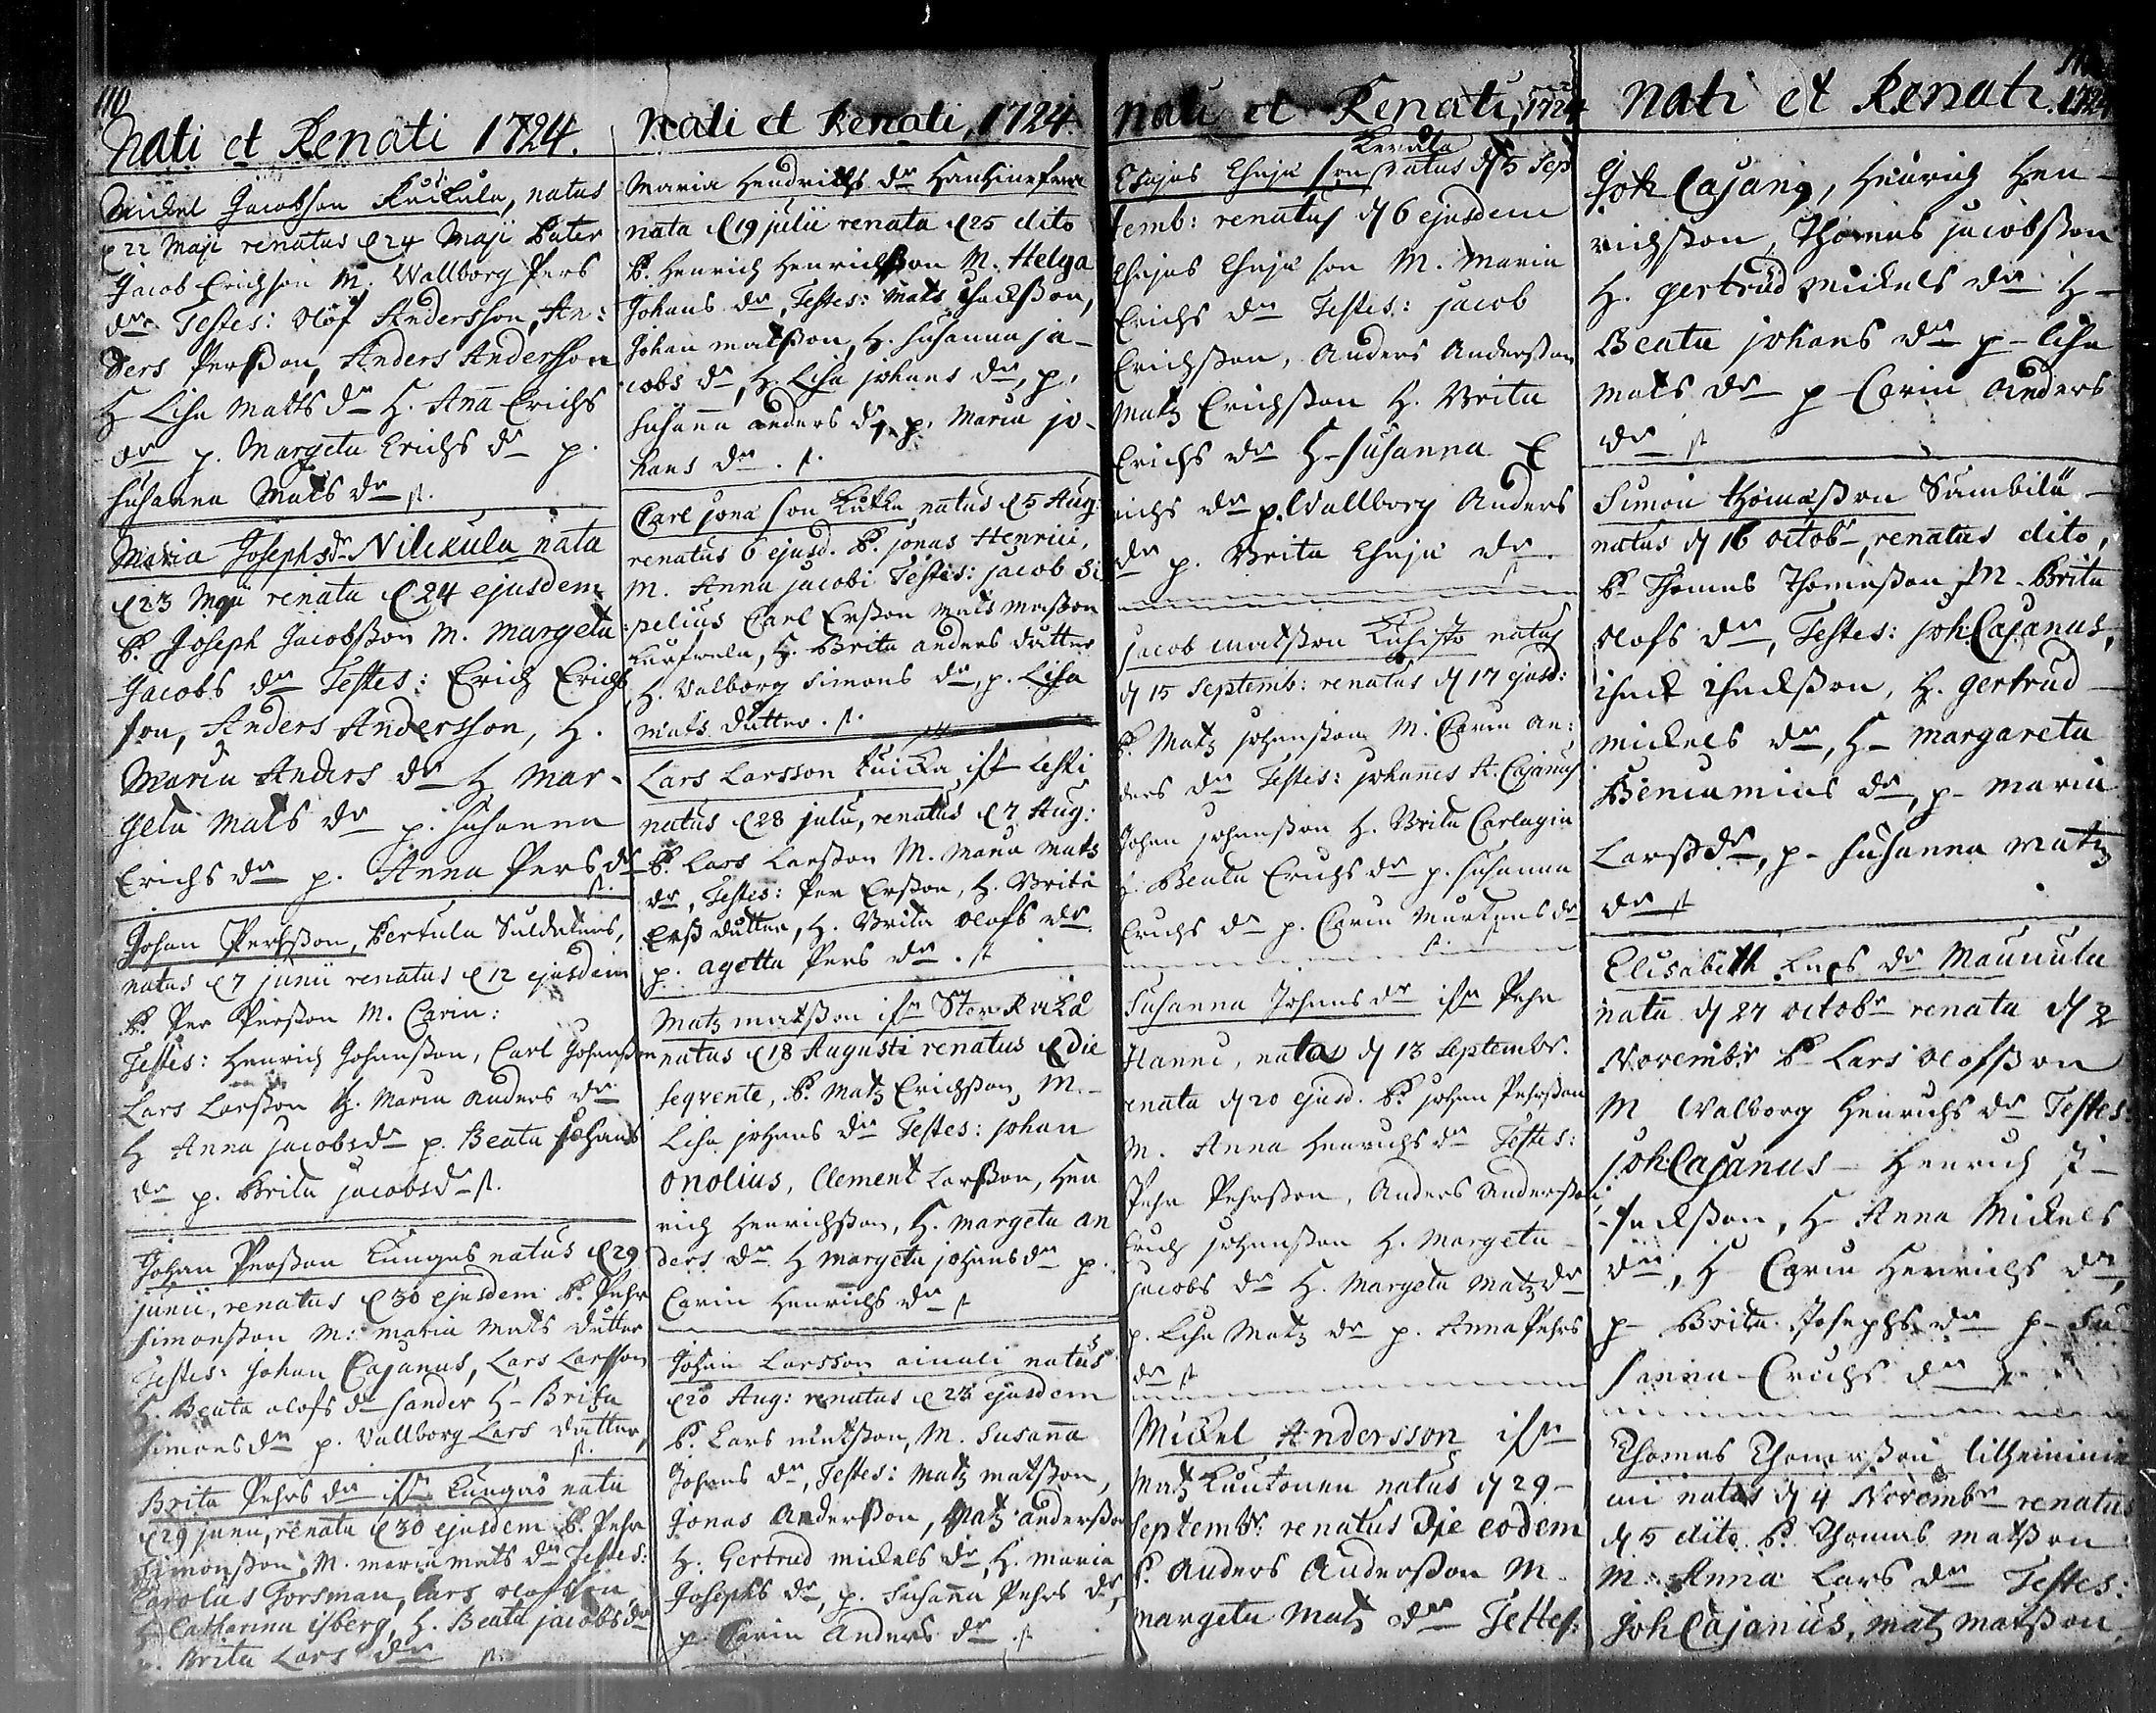 110
Nati et Renati 1724.
Mickel Jacobsson Kuckula, natus
d 22 Maji renatus d 24 Maji Pater
Jacob Erichson M. Wallborg Pers
dr Testes: Olof Andersson, An:
ders Persson, Anders Andersson
H Lisa Matts dr H. Anna Erichs
dr p. Margeta Erichs dr p.
Susanna Mats dr st.
Maria Josephsdr Nilckula nata
d 23 Maji renata d 24 ejusdem
P. Joseph Jacobsson M. Margeta
Jacobs dr Testes: Erich Erichs
son, Anders Andersson, H.
Maria Anders dr H Mar-
geta Mats dr p. Susanna
Erichs dr p. Anna Pers dr
st.
Johan Persson, Pertula Suldatens,
natus d 7 junii renatus d 12 ejusdem
P. Per Persson M. Carin:
Testes: Henrich Johansson, Carl Johansson
Lars Larsson H. Maria Anders dr
H Anna Jacobsdr p. Beata Johans
dr p. Brita Jacobsd st.
Johan Persson Kungas natus d 29
junii, renatus d 30 ejusdem P. Pehr
Simonsson M: Maria Mats dutter
Testes: Johan Cajanus, Lars Larsson
H. Beata Olofs dr Sander H- Brita
Simonsdr p. Vallborg Lars dutter,
st.
Brita Pehrs dr ifr Kungas nata
d 29 junii, renata d 30 ejusdem P. Pehr
Simonsson, M. Maria Mats dr Testes:
Carolus Forsman, Lars Olofsson
H Catharina Isberg, H. Beata Jacobsdr
p. Brita Lars dr st.
Nati et Renati, 1724.
Maria Hendrichs dr
nata d 19 julii renata d 25 dito
P. Henrich Henrichsson M. Helga
Johans dr, Testes: Mats Isacksson,
Johan Matsson, H. Susanna Ja-
cobs dr, H. Lisa Johans dr, p.
Susanna Anders dr, p. Maria Jo-
hans dr. st.
Carl Jonæ son Kukko, natus d 5 Aug:
renatus 6 ejusd. P. Jonas Henrici,
M. Anna Jacobi Testes: Jacob Si
pelius Carl Ersson Mats Masson
H. Brita Anders dutter
H. Valborg Simons dr, p. Lisa
Mats dutter. st.
Lars Larsson Kuicka ifr Leski
natus d 28 julii, renatus d 7 Aug:
P. Lars Larsson M. Maria Mats
dr, Testes: Per Ersson, H. Brita
Erss dutter, H. Brita Olofs dr
p. Agetta Pers dr. st
Matz Matsson ifr Stor Raka
natus d 18 Augusti renatus d die
seqvente, P. Matz Erichsson M.-
Lisa Johans dr Testes: Johan
Onolius, Clement Larsson, Hen
rich Henrichsson, H. Margeta An
ders dr H Margeta Johansdr p.
Carin Henrichs dr st
Johan Larsson Ainali natus
d 20 Aug: renatus d 23 ejusdem
P. Lars Matsson, M. Susanna
Johans dr, Testes: Matz Matsson,
Jonas Andersson, Matz Andersson
H. Gertrud Mickels dr, H. Maria
Josephs dr, p. Susanna Pehrs dr,
p. Carin Anders dr. st
Nati et Renati, 1724
Kerala
Esajas Esajæ son natus d 5 Sep
temb: renatus d 6 ejusdem
Esajas Esajæ son M. Maria
Erichs dr Testes: Jacob
Erichsson, Anders Andersson
Matz Erichsson H. Brita
Erichs dr H- Susanna E
richs dr p. Wallborg Anders
dr p. Brita Esajæ dr.
Jacob Matsson Kusisto natus
d 15 Septemb: renatus d 17 ejusd:
P. Matz Johansson M. Carin An:
ders dr Testes: Johannes A. Cajanus
Johan Johansson H. Brita Carlagia
H. Beata Erichs dr p. Susanna
Erichs dr p. Carin Murtens dr
st.
Susanna Johansdr ifr Pehr
Hannu, nata d 13 Septembr.
renata d 20 ejusd. P. Johan Pehrsson
M. Anna Henrichs dr Testes:
Pehr Pehrsson, Anders Andersson
Erich Johansson H. Margeta
Jacobs dr H. Margeta Matz dr
p. Lisa Matz dr p. Anna Pehrs
dr st
Mickel Andersson ifr
Matz Lautonen natus d 29-
Septembr: renatus Die eodem
P. Anders Andersson M.
Margeta Matz dr Testes:
Nati et Renati. 1724
Joh Cajanus, Henrich Hen-
richsson, Thomas Jacobsson
H. Gertrud Mickels dr H-
Beata Johans dr p- Lisa
Mats dr p Carin Anders
dr st
Simon Thomasson Sambilu-
natus d 16 octobr, renatus dito,
P Thomas Thomasson M- Brita
Olofs dr, Testes: Joh: Cajanus,
Isack Isacksson, H. Gertrud
Mickels dr, H- Margareta
Beniamins dr, p- Maria
Larssdr, p- Susanna Matz
dr st
Elisabeth Lars dr Maunula
nata d 27 octobr renata d 2
Novembr P Lars Olofsson
M Walborg Henrichs dr Testes:
Joh: Cajanus- Henrich I-
sacksson, H- Anna Mickels
dr, H Carin Henrichs dr,
p- Brita Josephs dr p- Su-
sanna Erichs dr st
Thomas Thomasson
natus d 4 Novembr renatus
d 5 dito P. Thomas Matsson
M. Anna Lars dr Testes:
Joh Cajanus, Matz Matsson,